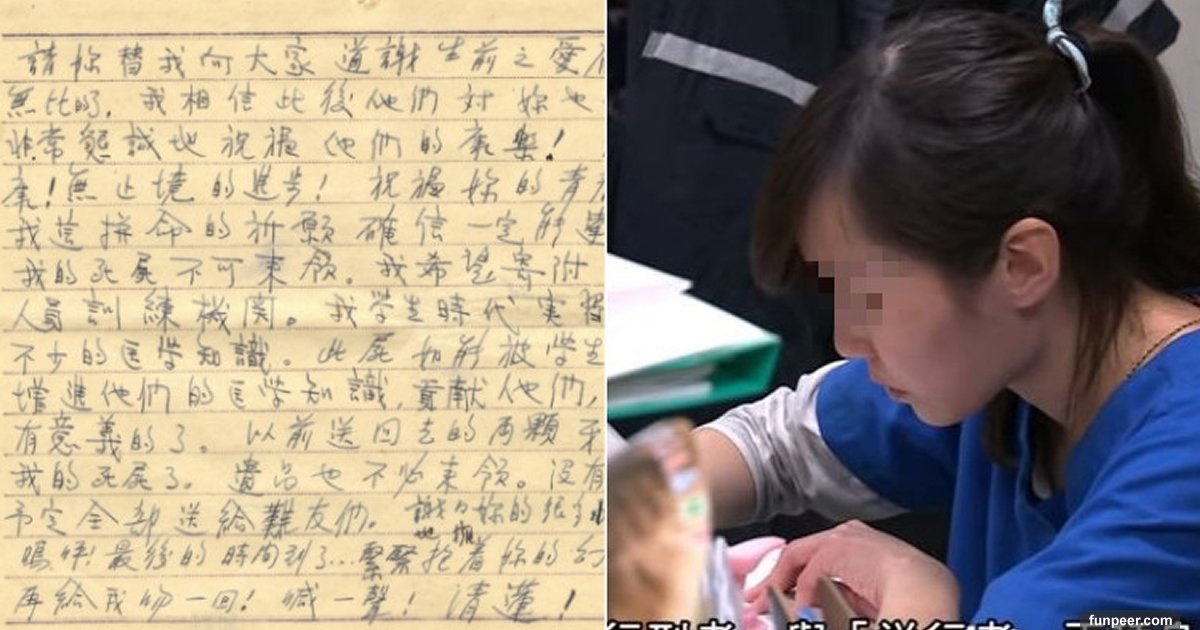 請你替我向大家道謝生前之愛
無比的，我相信此後他們対妳也
非常懇誠地祝福他們的康樂！
康！無止境的進步！祝福妳的青
我這拼命的祈願確信一定能達
我的死屍不可来領。我希望寄附
人員訓練機関。我学生時代実習
不少的医学知識。此屍如能被学生
增進他們的医学知識，貢献他們，
有意義的了。以前送回去的両顆牙
我的死屍了。遺品也不必来領。没有
予定全部送給難友們。謝々妳的
嗚呼！最後的時間到了…緊緊地抱着妳的幻
再給我吻一回！喊一聲！清蓮！
funpeer.com